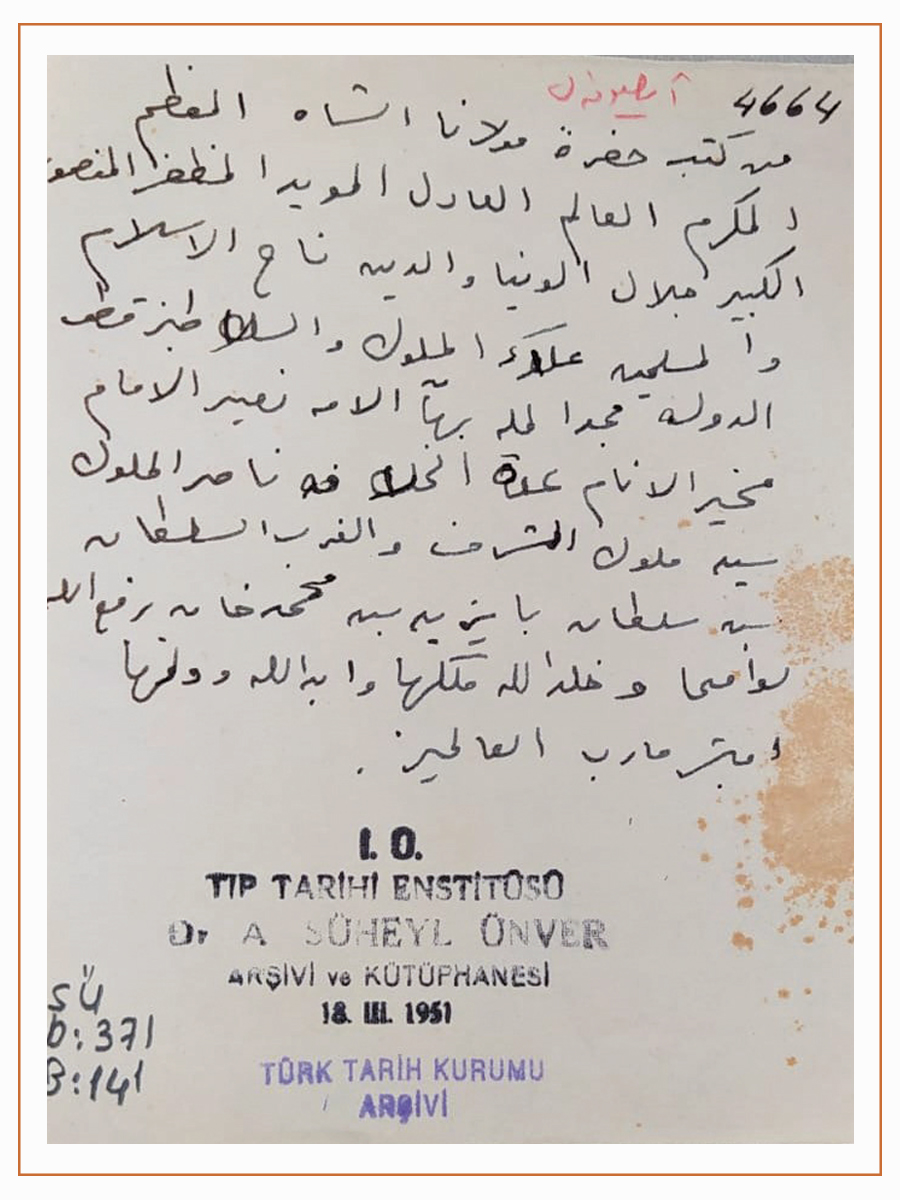 4664
آیاصوفیه
من كتب حضرة مولانا الشاه المعظم
المكرم العالم العادل المويد المظفر المنصور
الكبير جلال الدنيا والدين تاج الاسلام
والمسلمين علاء الملوك والسلاطين
الدولة مجد الملة بهآ الامه نصير الامام
الانام عدة الخلافه ناصر الملوك
سيد ملوك الشرق والغرب السلطان
بن سلطان بايزيد بن محمد خان رفع الله
وخلد الله ملكها وابد الله
رب العالمين .
I. O.
TIP TARİHİ ENSTİTÜSÜ
Dr A SÜHEYL ÜNVER
ARŞİVİ ve KÜTÜPHANESİ
18. III. 1951
SÜ
D: 371
B: 141
TÜRK TARİH KURUMU
ARŞİVİ